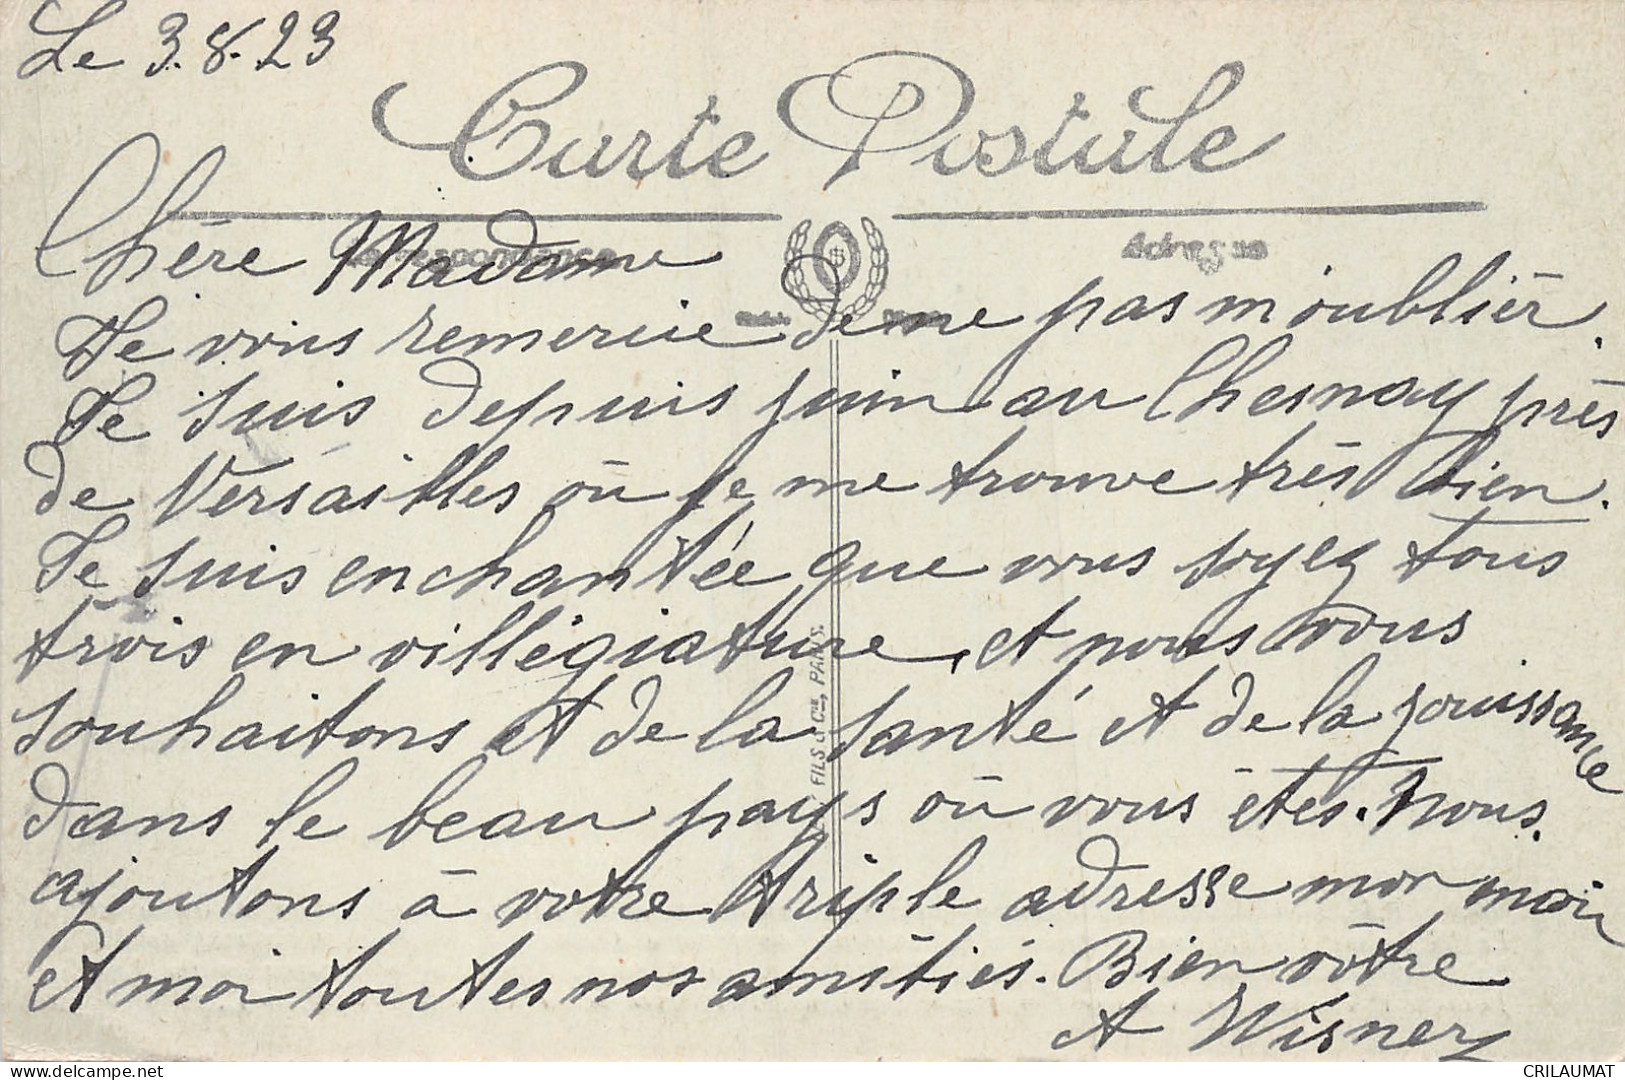 Le 3.8.23
Carte Postale
Correspondance
Adresse
Chère Madame
Je vous remercie de ne pas m'oublier.
Je suis depuis juin au Chesnay près
de Versailles où je me trouve très bien.
Je suis enchantée que vous soyez tous
trois en villégiature, et nous vous
souhaitons et de la santé et de la jouissance
dans le beau pays où vous êtes. Nous
ajoutons à votre triple adresse mon mari
et moi toutes nos amitiés. Bien vôtre
A Wisner
FILS & Cie, PARIS.
delcampe.net
CRILAUMAT